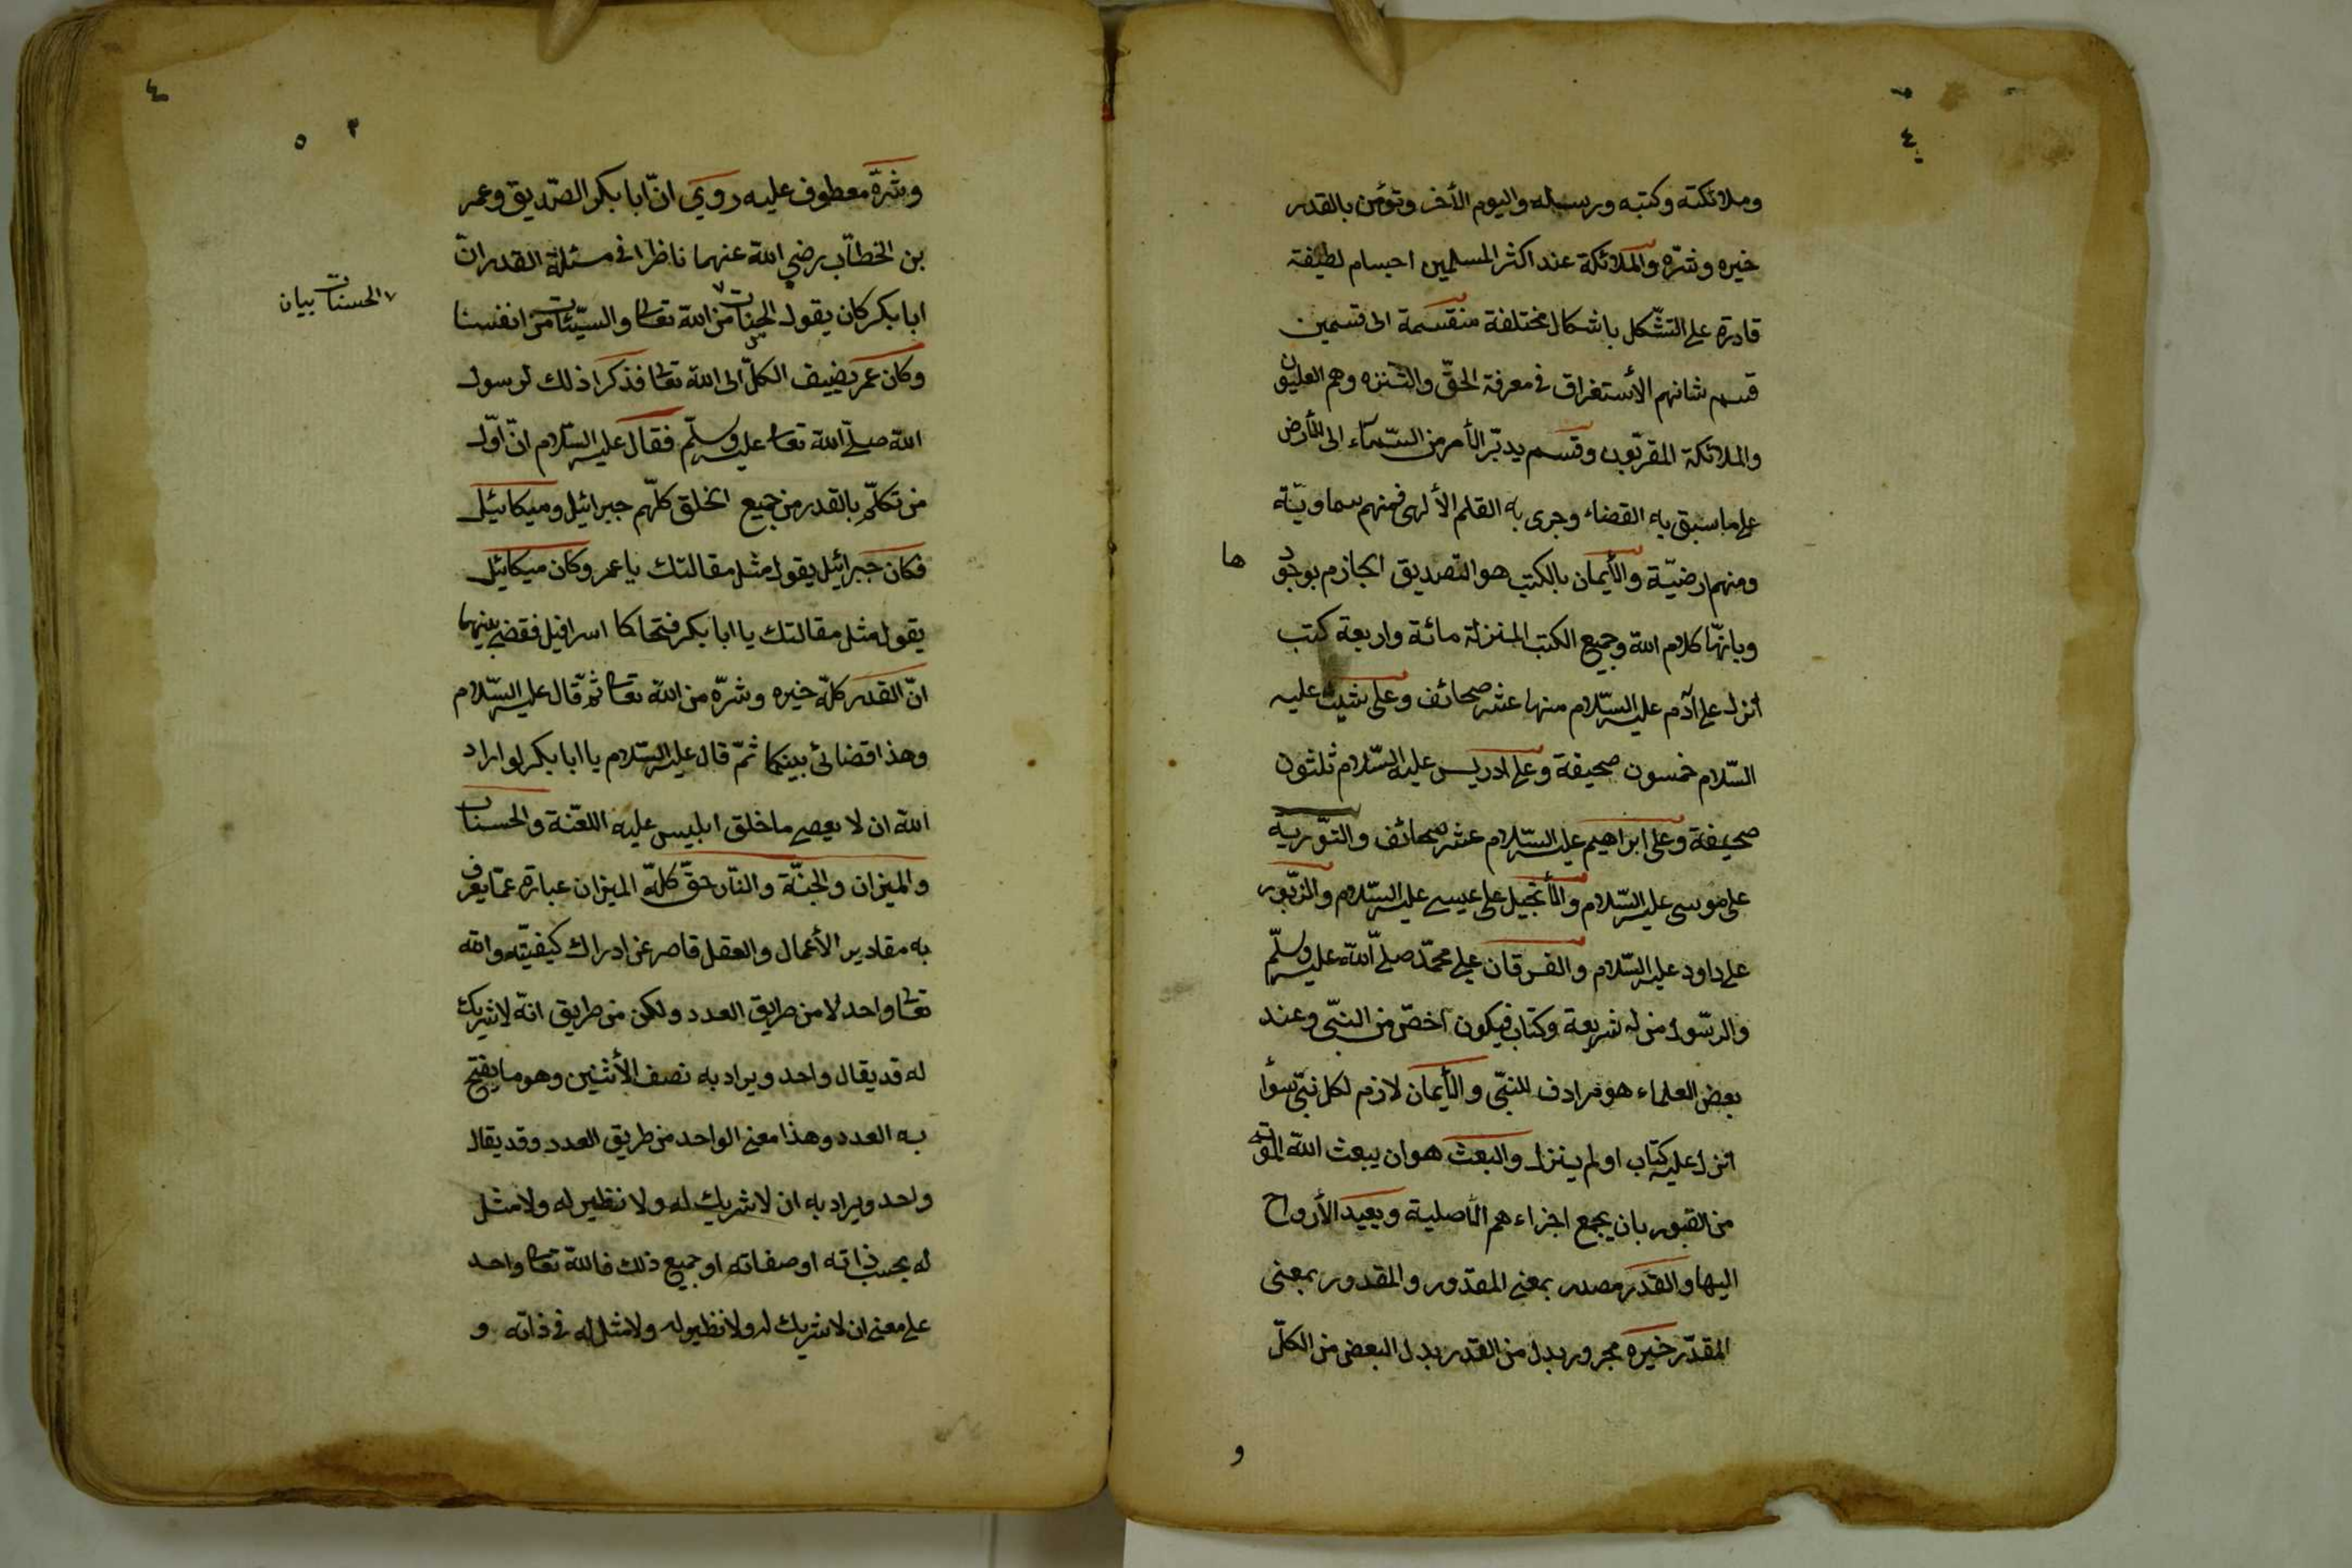 ٤
وملائكته وكتبه ورسله واليوم الأخر وتؤمن بالقدر
خيره وشرّه والملائكة عند اكثر المسلمين اجسام لطيفة
قادرة على التشّكل باشكال مختلفة منقسمة الى قسمين
قسم شانهم الأستغراق في معرفة الحقّ والتنزه وهم العليون
والملائكة المقربّون وقسم يدبّر الأمر من السّماء الى الأرض
على ما سبق به القضاء وجرى به القلم الألهى فمنهم سماويّة
ومنهم ارضيّة والأيمان بالكتب هو التصديق الجازم بوجود
ها
وبانّها كلام الله وجميع الكتب المنزلة مائة واربعة كتب
انزل على آدم عليه السّلام منها عشر صحائف وعلى شيث عليه
السّلام خمسون صحيفة وعلى ادريس عليه السّلام ثلثون
صحيفة وعلى ابراهيم عليه السّلام عشر صحائف والتوّرية
على موسى عليه السّلام والأنجيل على عيسى عليه السّلام والزّبور
على داود عليه السّلام والفرقان على محمّد صلّى الله عليه وسلّم
والرسّول من له شريعة وكتاب فيكون اخصّ من النبّى وعند
بعض العلماء هو مرادف للنبّى والأيمان لازم لكل نبّى سؤا
انزل عليه كتاب او لم ينزل والبعث هو ان يبعث الله الموتى
من القبور بان يجمع اجزاءهم الأصلية ويعيد الأرواح
اليها والقدر مصدر بمعنى المقدور والمقدور بمعنى
المقدّر خيره مجرور بدل من القدر بدل البعض من الكلّ
و
٤
٣ ٥
وشرّه معطوف عليه روي انّ ابا بكر الصّديق وعمر
بن الخطّاب رضي الله عنهما ناظرا في مسئلة القدر انّ
ابا بكر كان يقول الحسنات من الله تعالى والسيّئات من انفسنا
٧ الحسنات بيان
وكان عمر يضيف الكلّ الى الله تعالى فذكرا ذلك لرسول
الله صلّى الله تعالى عليه وسلّم فقال عليه السّلام انّ اوّل
من تكلّم بالقدر من جميع الخلق كلّهم جبرائيل وميكائيل
فكان جبرائيل يقول مثل مقالتك يا عمر وكان ميكائيل
يقول مثل مقالتك يا ابا بكر فتحاكا اسرافيل فقضى بينهما
انّ القدر كلّه خيره وشرّه من الله تعالى ثمّ قال عليه السّلام
وهذا قضائى بينكما ثمّ قال عليه السّلام يا ابا بكر لو اراد
الله ان لا يعصى ما خلق ابليس عليه اللعّنة والحسنات
والميزان والجنّة والنّار حقّ كلّه الميزان عبارة عمّا يعرف
به مقادير الأعمال والعقل قاصر عن ادراك كيفيّته والله
تعالى واحد لا من طريق العدد ولكن من طريق انّه لا شريك
له قد يقال واحد ويراد به نصف الأثنين وهو ما يفتح
به العدد وهذا معنى الواحد من طريق العدد وقد يقال
واحد ويراد به ان لا شريك له ولا نظير له ولا مثل
له بحسب ذاته او صفاته او جميع ذلك فالله تعالى واحد
على معنى ان لا شريك له ولا نظير له ولا مثل له في ذاته و